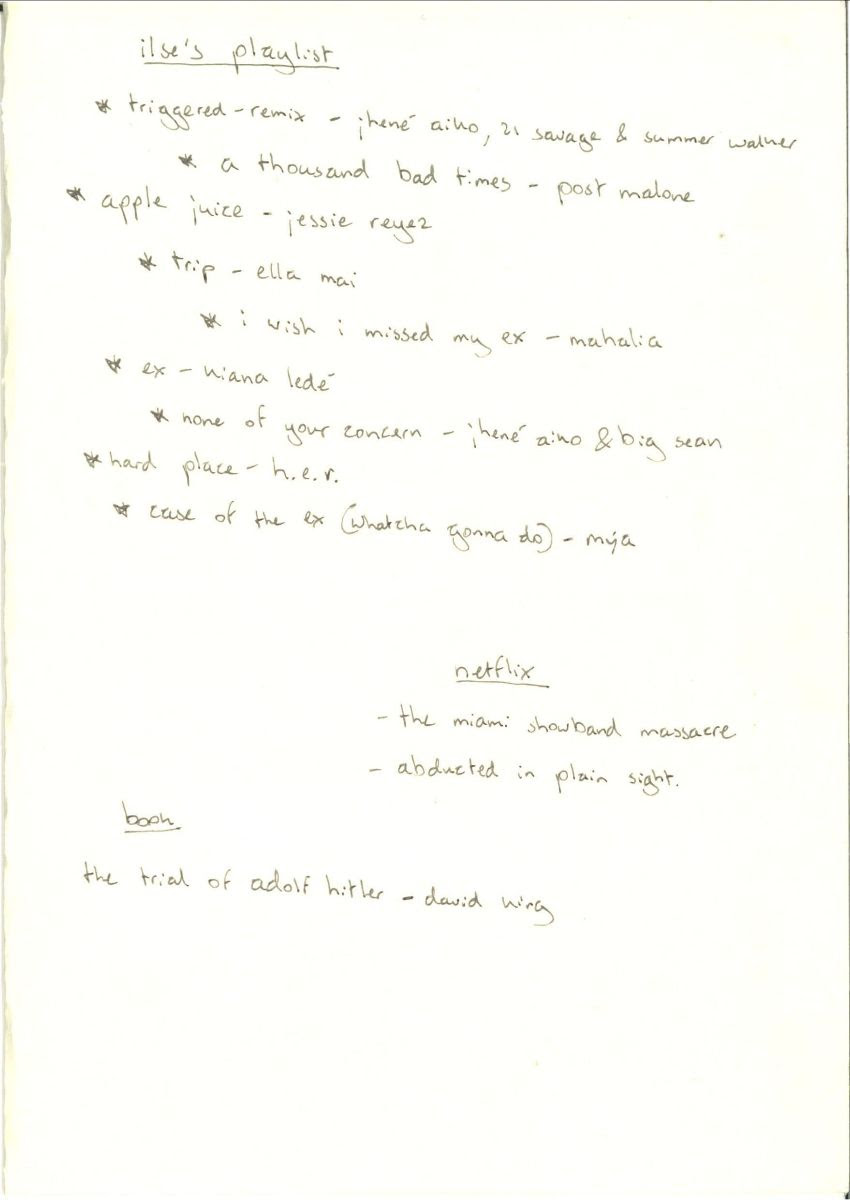 ilse's playlist
* triggered - remix - jhené aiko, 21 savage & summer walker
* a thousand bad times - post malone
* apple juice - jessie reyez
* trip - ella mai
* i wish i missed my ex - mahalia
* ex - kiana ledé
* none of your concern - jhené aiko & big sean
* hard place - h.e.r.
* case of the ex (whatcha gonna do) - mýa
netflix
- the miami showband massacre
- abducted in plain sight.
book
the trial of adolf hitler - david king